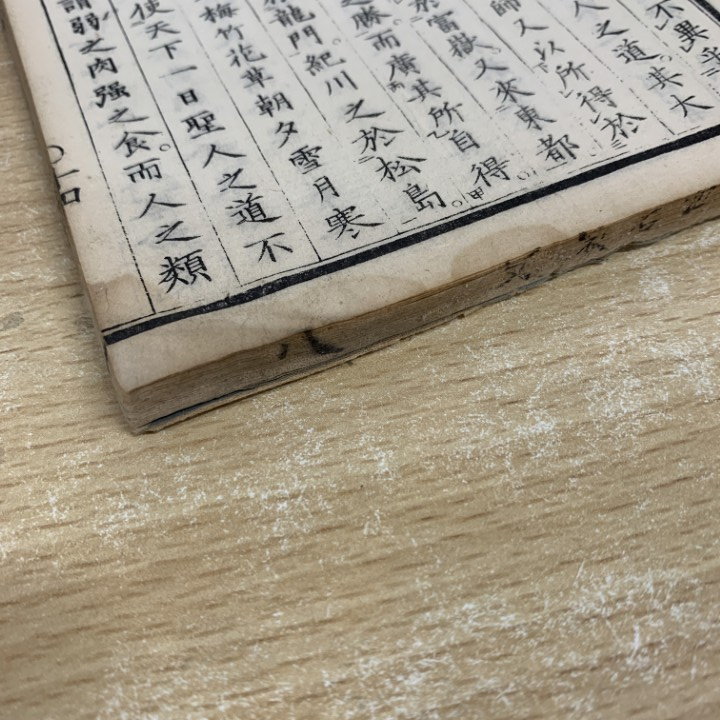 不異乎
人之道其大
師又以所得於
於富嶽又來東都
之勝而廣其所自得
龍門紀川之於松島
梅竹花草朝夕雪月寒
使天下一日聖人之道不
謂弱之肉强之食而人之類
八